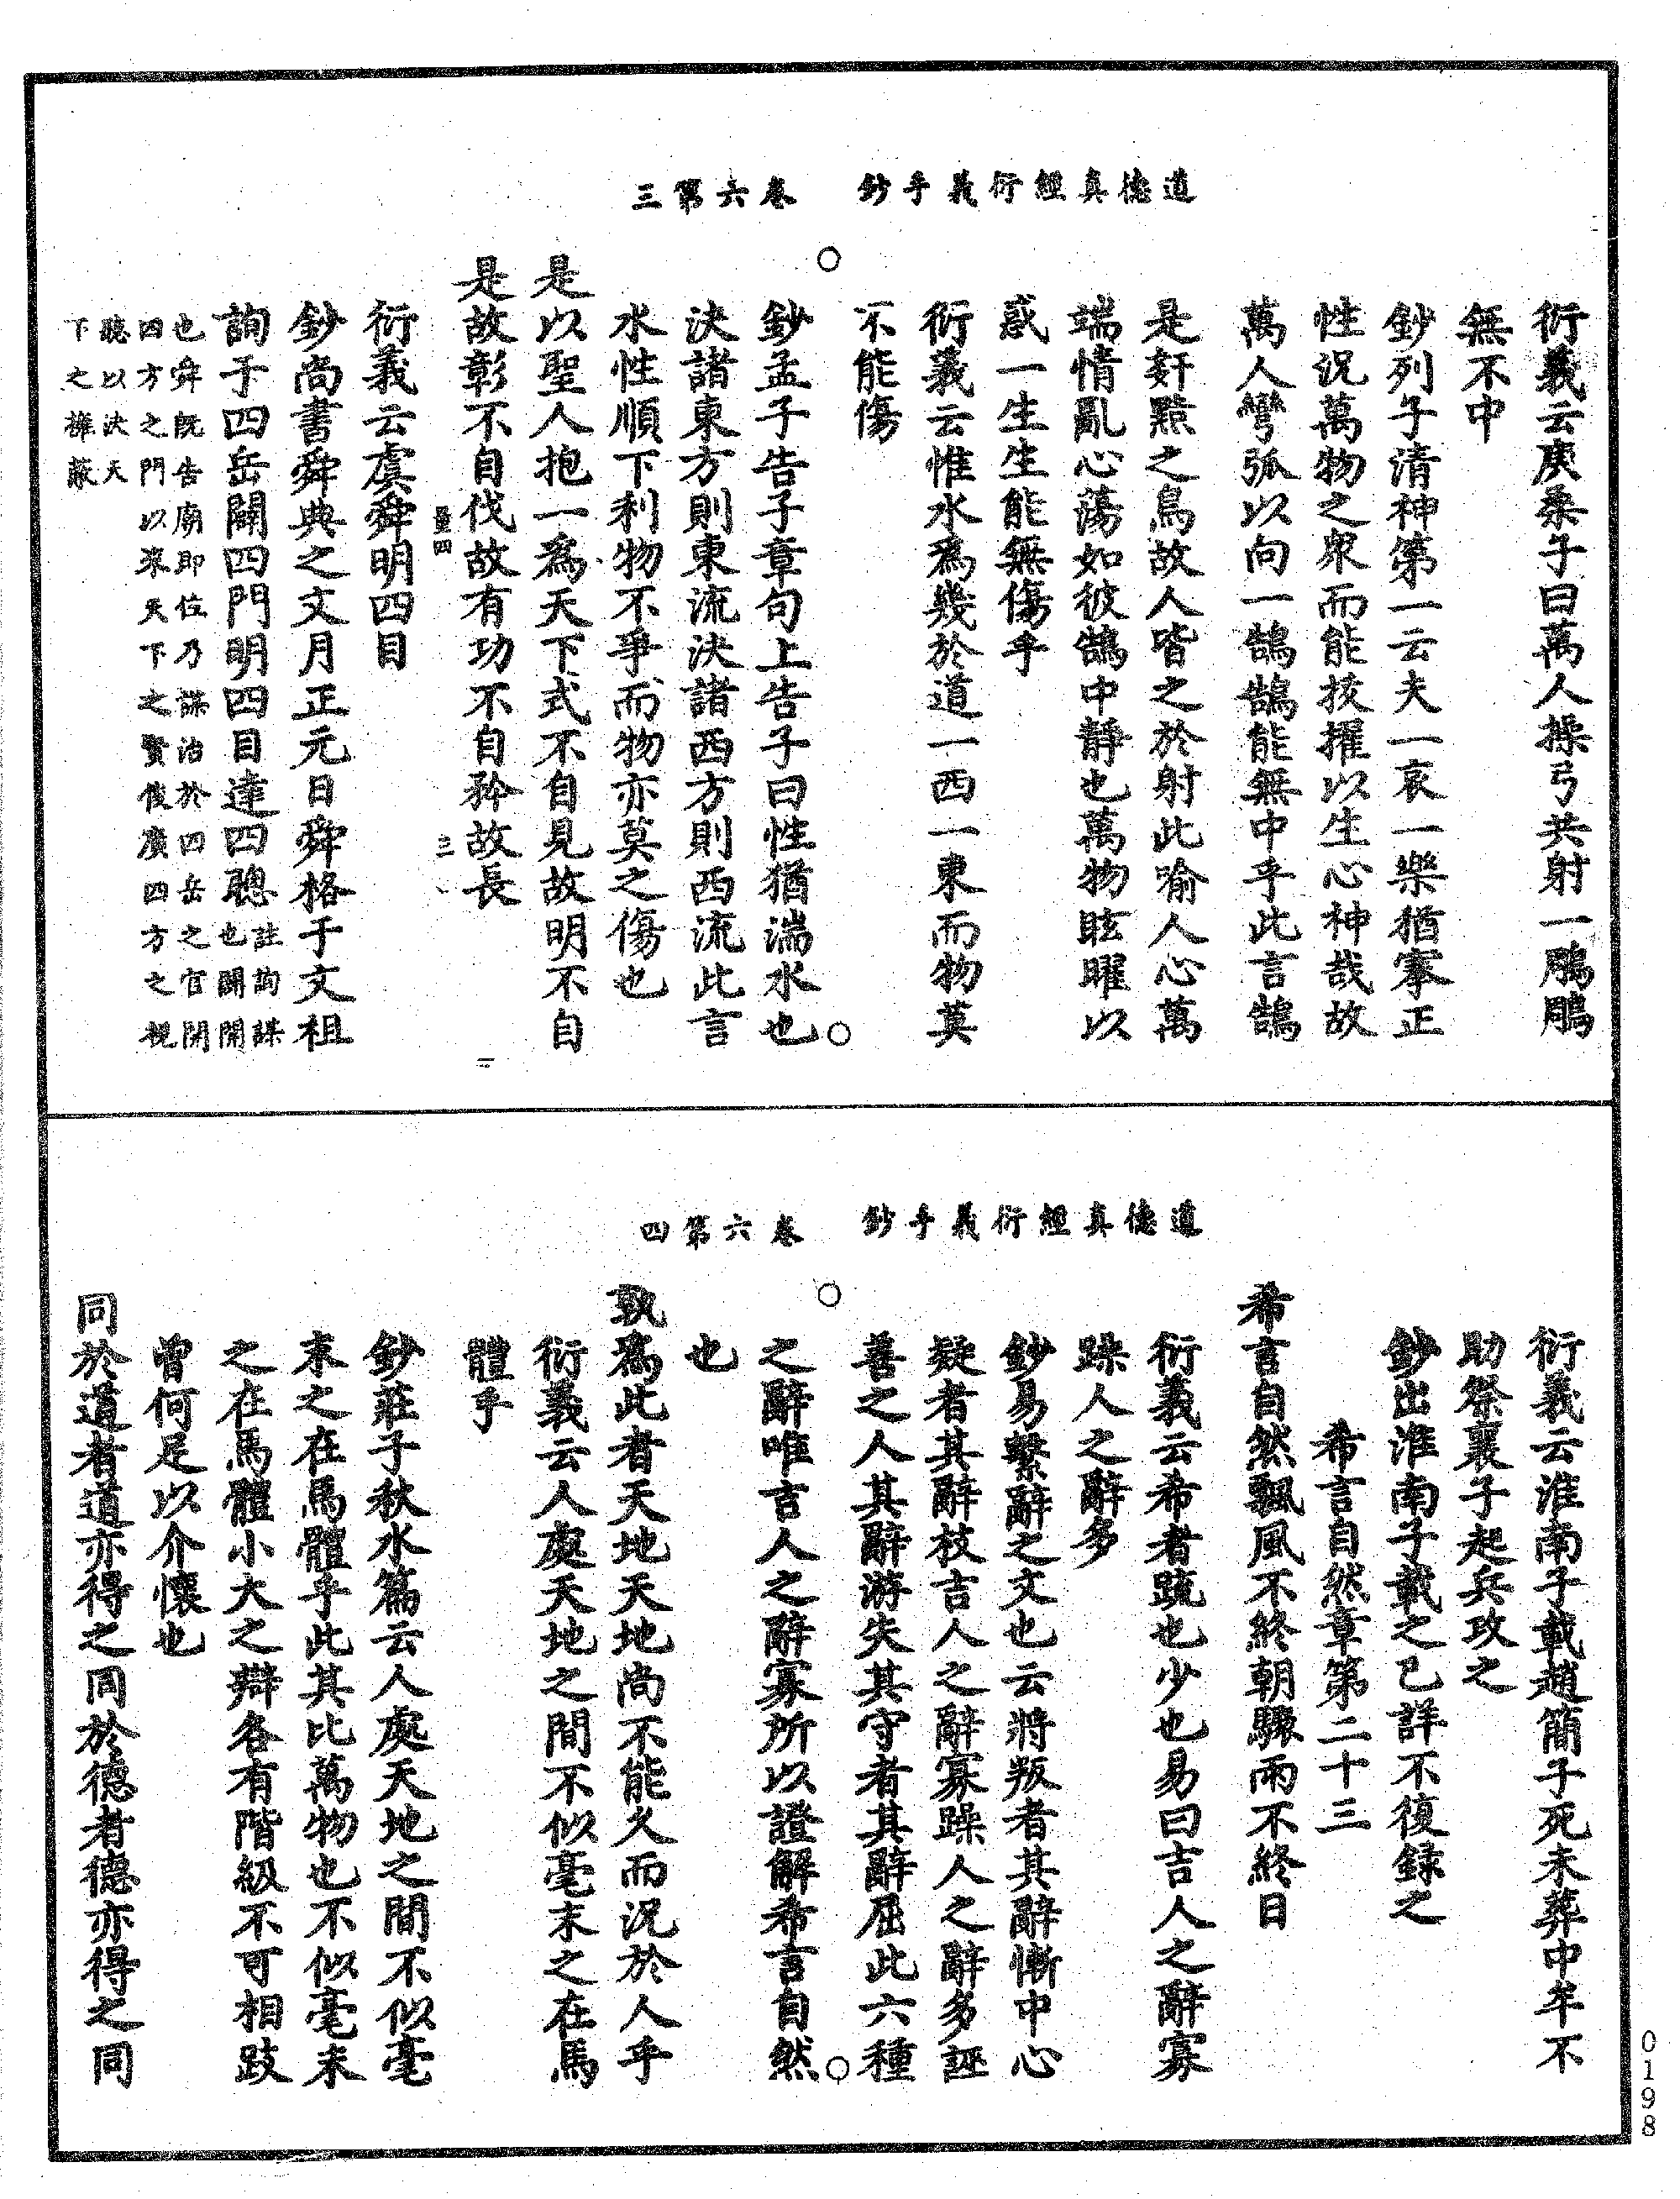 道德真經衍義手鈔　卷六第三
衍義云庚桑子曰萬人操弓共射一鵰鵰
無不中
鈔列子清神第一云夫一哀一樂猶搴正
性況萬物之衆而能拔擢以生心神哉故
萬人彎弧以向一鵠鵠能無中乎此言鵠
是姧㸃之鳥故人皆之於射此喻人心萬
端情亂心蕩如彼鵠中靜也萬物眩曜以
惑一生生能無傷乎
衍義云惟水爲幾於道一西一東而物莫
不能傷
鈔孟子告子章句上告子曰性猶湍水也
決諸東方則東流決諸西方則西流此言
水性順下利物不爭而物亦莫之傷也
是以聖人抱一爲天下式不自見故明不自
是故彰不自伐故有功不自矜故長
三
衍義云虞舜明四目
鈔尚書舜典之文月正元日舜格于文祖
詢于四岳闢四門明四目達四聰註詢謀
也闢開
也舜既告廟即位乃謀治於四岳之官開
四方之門以來天下之賢俊廣四方之視
聽以決天
下之壅蔽
道德真經衍義手鈔　卷六第四
衍義云淮南子載趙簡子死未葬中牟不
助祭襄子起兵攻之
鈔出淮南子載之已詳不復録之
希言自然章第二十三
希言自然飄風不終朝驟雨不終日
衍義云希者䟽也少也易曰吉人之辭寡
躁人之辭多
鈔易繫辭之文也云將叛者其辭慚中心
疑者其辭枝吉人之辭寡躁人之辭多誣
善之人其辭游失其守者其辭屈此六種
之辭唯吉人之辭寡所以證解希言自然
也
孰爲此者天地天地尚不能久而況於人乎
衍義云人處天地之間不似毫末之在馬
體乎
鈔莊子秋水篇云人處天地之間不似毫
末之在馬體乎此其比萬物也不似毫末
之在馬體小大之辯各有階級不可相跂
曾何足以介懷也
同於道者道亦得之同於德者德亦得之同
0198